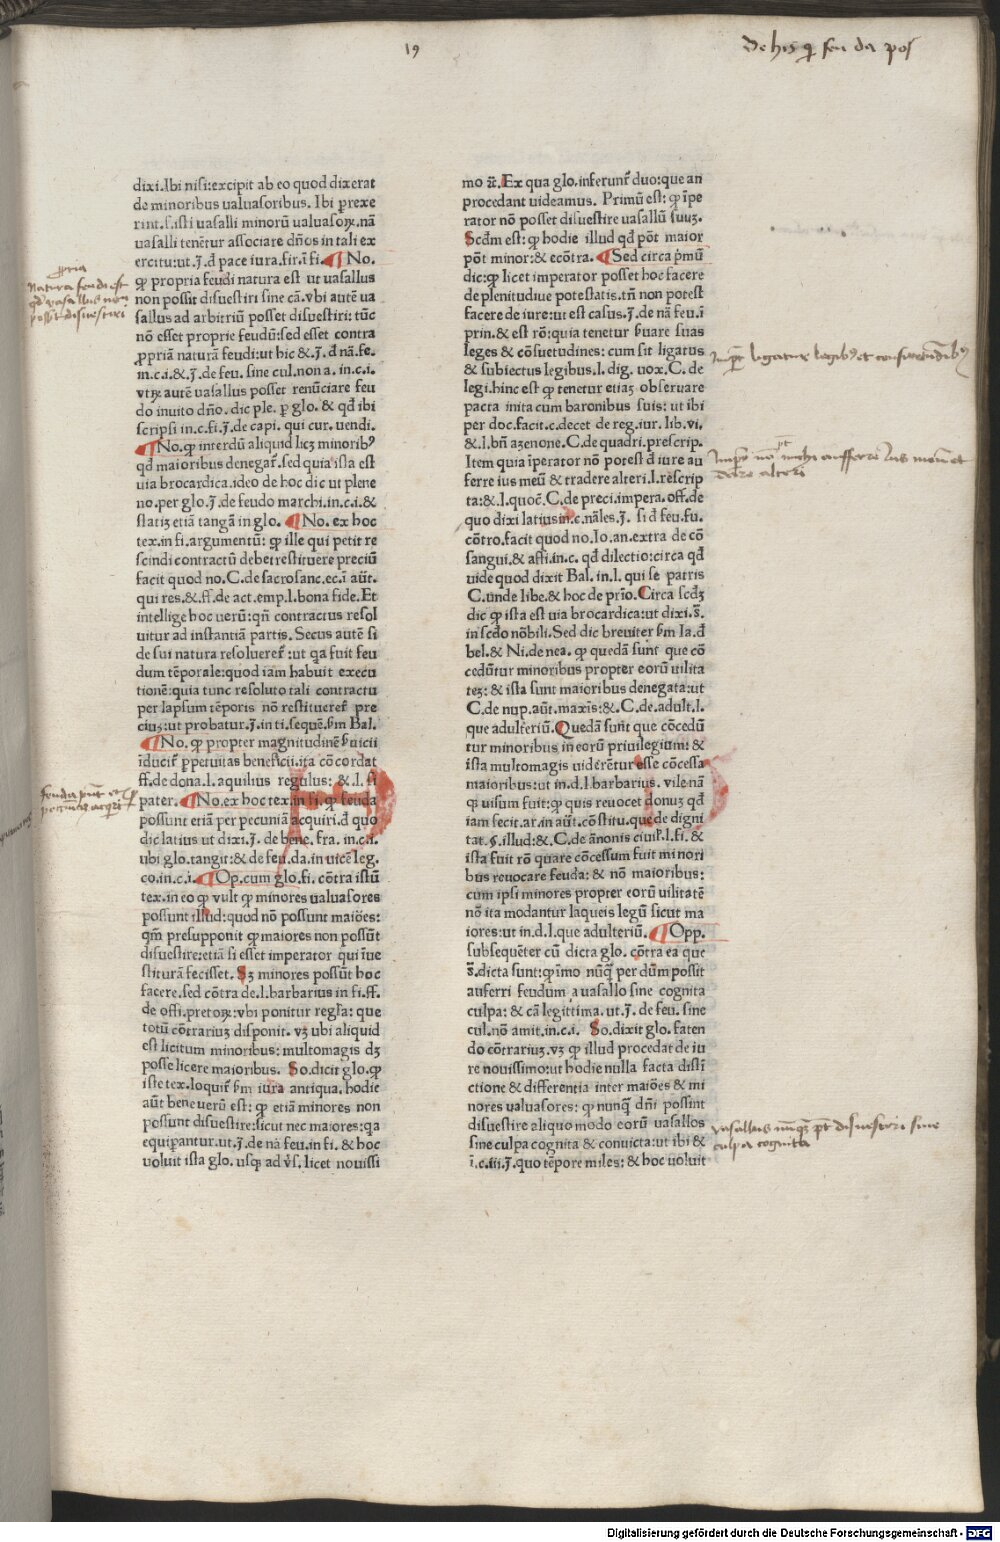 19
De his q feu da pos
dixi.Ibi nisi:excipit ab eo quod dixerat
de minoribus ualuasoribus. Ibi p̱rexe
rint.s.isti uasalli minorū ualuasoꝝ.nā
uasalli tenētur associare dn̄os in tali ex
ercitu:ut.J.đ pace iura.fir.i fi. ¶ No.
ꝙ propria feudi natura est ut uasallus
non possit disuestiri sine cā.vbi autē ua
sallus ad arbitriū posset disuestiri: tūc
nō esset proprie feudū:sed esset contra
ꝓpriā naturā feudi:ut hic &.J.đ nā.fe.
in.c.i.&.J.de feu. sine cul.non a. in.c.i.
vtꝝ autē uasallus posset renūciare feu
do inuito dn̄o. dic ple. ꝑ glo. & qđ ibi
scripsi in.c.fi.J.de capi. qui cur. uendi.
¶ No.ꝙ interdū aliquid licꝫ minoribꝰ
qđ maioribus denegat̄.sed quia ista est
uia brocardica.ideo de hoc dic ut plene
no.per glo.J.de feudo marchi.in.c.i.&
statiꝫ etiā tangā in glo. ¶ No. ex hoc
tex.in fi.argumentū: ꝙ ille qui petit re
scindi contractū debet restituere preciū
facit quod no.C.de sacrosanc.ec.ī aūt.
qui res.&.ff.de act.emp.l.bona fide.Et
intellige hoc uerū:qn̄ contractus resol
uitur ad instantiā partis. Secus autē si
de sui natura resolueret̄ :ut qa fuit feu
dum tēporale:quod iam habuit execu
tionē:quia tunc resoluto tali contractu
per lapsum tēporis nō restitueret̄ pre
ciuꝫ:ut probatur.J.in ti.sequē.ẜm Bal.
¶ No. ꝙ propter magnitudinē ẜuicii
īducit̄ ꝑpetuitas beneficii.ita cōcordat
ff.de dona.l. aquilius regulus: &.l. si
pater. ¶ No.ex hoc tex.in fi. ꝙ feuda
possunt etiā per pecuniā acquiri.đ quo
dic latius ut dixi.J. de bene. fra. in.c.i.
ubi glo.tangit:& de feu.da.in uicē leg.
co.in.c.i. ¶ Op.cum glo.fi. cōtra istū
tex.in eo ꝙ vult ꝙ minores ualuasores
possunt illud:quod nō possunt maiōes:
qm̄ presupponit ꝙ maiores non possūt
disuestire:etiā si esset imperator qui īue
stiturā fecisset. Sꝫ minores possūt hoc
facere.sed cōtra de.l.barbarius in fi.ff.
de offi.pretoꝝ:vbi ponitur regl̄a: que
totū cōtrariuꝫ disponit. vꝫ ubi aliquid
est licitum minoribus: multomagis dꝫ
posse licere maioribus. So.dicit glo.ꝙ
iste tex.loquit̄ ẜm iura antiqua. hodie
aūt bene uerū est: ꝙ etiā minores non
possunt disuestire:sicut nec maiores:qa
equiꝑantur.ut.J.de nā feu.in fi. & hoc
uoluit ista glo. usqꝫ ad v̄s. licet nouissi
mo ⁊c. Ex qua glo.inferunt̄ duo:que an
procedant uideamus. Primū est: ꝙ īpe
rator nō posset disuestire uasallū suuꝫ.
Scđm est: ꝙ hodie illud qđ pōt maior
pōt minor:& ecōtra. ¶ Sed circa p̄mū
dic:ꝙ licet imperator posset hoc facere
de plenitudiue potestatis.tn̄ non potest
facere de iure:ut est casus.J.de nā feu.ī
prin.& est rō:quia tenetur ẜuare suas
leges & cōsuetudines: cum sit ligatus
& subiectus legibus.l. dig. uox.C. de
legi.hinc est ꝙ tenetur etiaꝫ obseruare
pacta inita cum baronibus suis: ut ibi
per doc.facit.c.decet de reg.iur. lib.vi.
&.l.bn̄ a zenone.C.de quadri.prescrip.
Item quia īperator nō potest đ iure au
ferre ius meū & tradere alteri.l.rescrip
ta:&.l.quoc̄.C.de preci.impera.off.de
quo dixi latius in.c.nāles.J. si đ feu.fu.
cōtro.facit quod no.Io.an.extra de cō
sangui.& affi.in.c. qđ dilectio:circa qđ
uide quod dixit Bal. in.l. qui se patris
C.unde libe.& hoc de prīo. Circa scđꝫ
dic ꝙ ista est uia brocardica:ut dixi.s̄.
in scđo nōbili.Sed dic breuiter ẜm Ia.đ
bel.& Ni.de nea. ꝙ quedā sunt que cō
cedūtur minoribus propter eorū uilita
teꝫ: & ista sunt maioribus denegata:ut
C.de nup.aūt.maxīs:&.C.de.adult.l.
que adulteriū. Quedā sunt que cōcedū
tur minoribus in eorū priuilegium: &
ista multomagis uidērētur esse cōcessa
maioribus:ut in.d.l.barbarius. vile nā
ꝙ uisum fuit:ꝙ quis reuocet donuꝫ qđ
iam fecit.ar.in aūt.cōstitu.que de digni
tat.§.illud:&.C.de ānonis ciuil̄.l.fi.&
ista fuit rō quare cōcessum fuit minori
bus reuocare feuda: & nō maioribus:
cum ipsi minores propter eorū uilitatē
nō ita modantur laqueis legū sicut ma
iores:ut in.d.l.que adulteriū. ¶ Opp.
subsequēter cū dicta glo. cōtra ea que
s̄.dicta sunt:ꝙ īmo nūq̄ per dn̄m possit
auferri feudum a uasallo sine cognita
culpa: & cā legittima. ut.J. de feu. sine
cul.nō amit.in.c.i. So.dixit glo. faten
do cōtrariuꝫ.vꝫ ꝙ illud procedat de iu
re nouissimo:ut hodie nulla facta disti
ctione & differentia inter maiōes & mi
nores ualuasores: ꝙ nunq̄ dn̄i possint
disuestire aliquo modo eorū uasallos
sine culpa cognita & conuicta:ut ibi &
ī.c.iii.J.quo tēpore miles: & hoc uoluit
ꝓpria
Natura feudi est
qđ uasallus non
possit disuestiri
feuda pn̄t etiā ꝑ
pecuniā acqri
Impr ligatur legibꝰ et consuetudinibꝰ
Impr nō pt michi aufferre Ius meū et
dare alteri
vasallus nunqꝫ pt disuestiri sine
culpa cognita
Digitalisierung gefördert durch die Deutsche Forschungsgemeinschaft - DFG